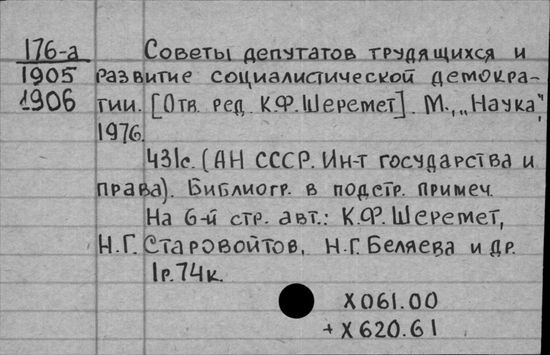 176-а
1905
1906
Советы депутатов трудящихся и
развитие социалистической демокра-
тии. [Отв. ред. К.Ф. Шеремет]. М., „Наука",
1976.
431с. (АН СССР. Ин-т государства и
права). Библиогр. в подстр. примеч.
На 6-й стр. авт.: К.Ф. Шеремет,
Н.Г. Старовойтов, Н.Г. Беляева и др.
1р.74к.
X061.00
+ X620.61